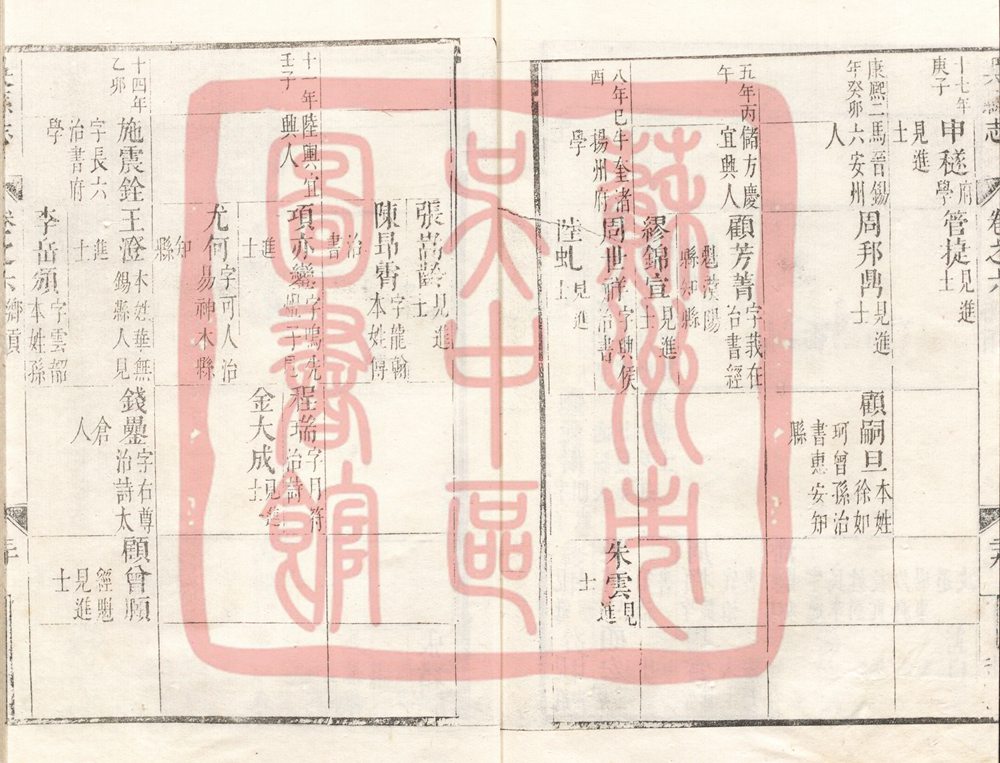 志
卷之六
十七年庚子
申穟府學見進士
管捷見進士
康熙二年癸卯
馬晉錫六安州人
周邦鼎見進士
顧嗣旦本姓徐如珂曾孫治書惠安知縣
五年丙午
儲方慶宜興人
顧芳菁字我在治書經魁漢陽縣知縣
繆錦宣見進士
八年己酉
牛奎渚揚州府學
周世祥字典侯治書
朱雲見進士
陸虬見進士
張嵩齡見進士
陳昂霄字龍翰本姓傅治書
十一年壬子
陸輿宜興人
項亦鑾字鳴先
程瑞字月符治詩
金大成見進士
尤何字可人治易神木縣知縣
十四年乙卯
施震銓字長六治書府學
王澄本姓華無錫縣人見進士
錢曑字右尊治詩太倉人
顧曾願經魁見進士
李岳頒字雲韶本姓孫
卷之六
鄉貢
蘇州市
吳中區
圖書館